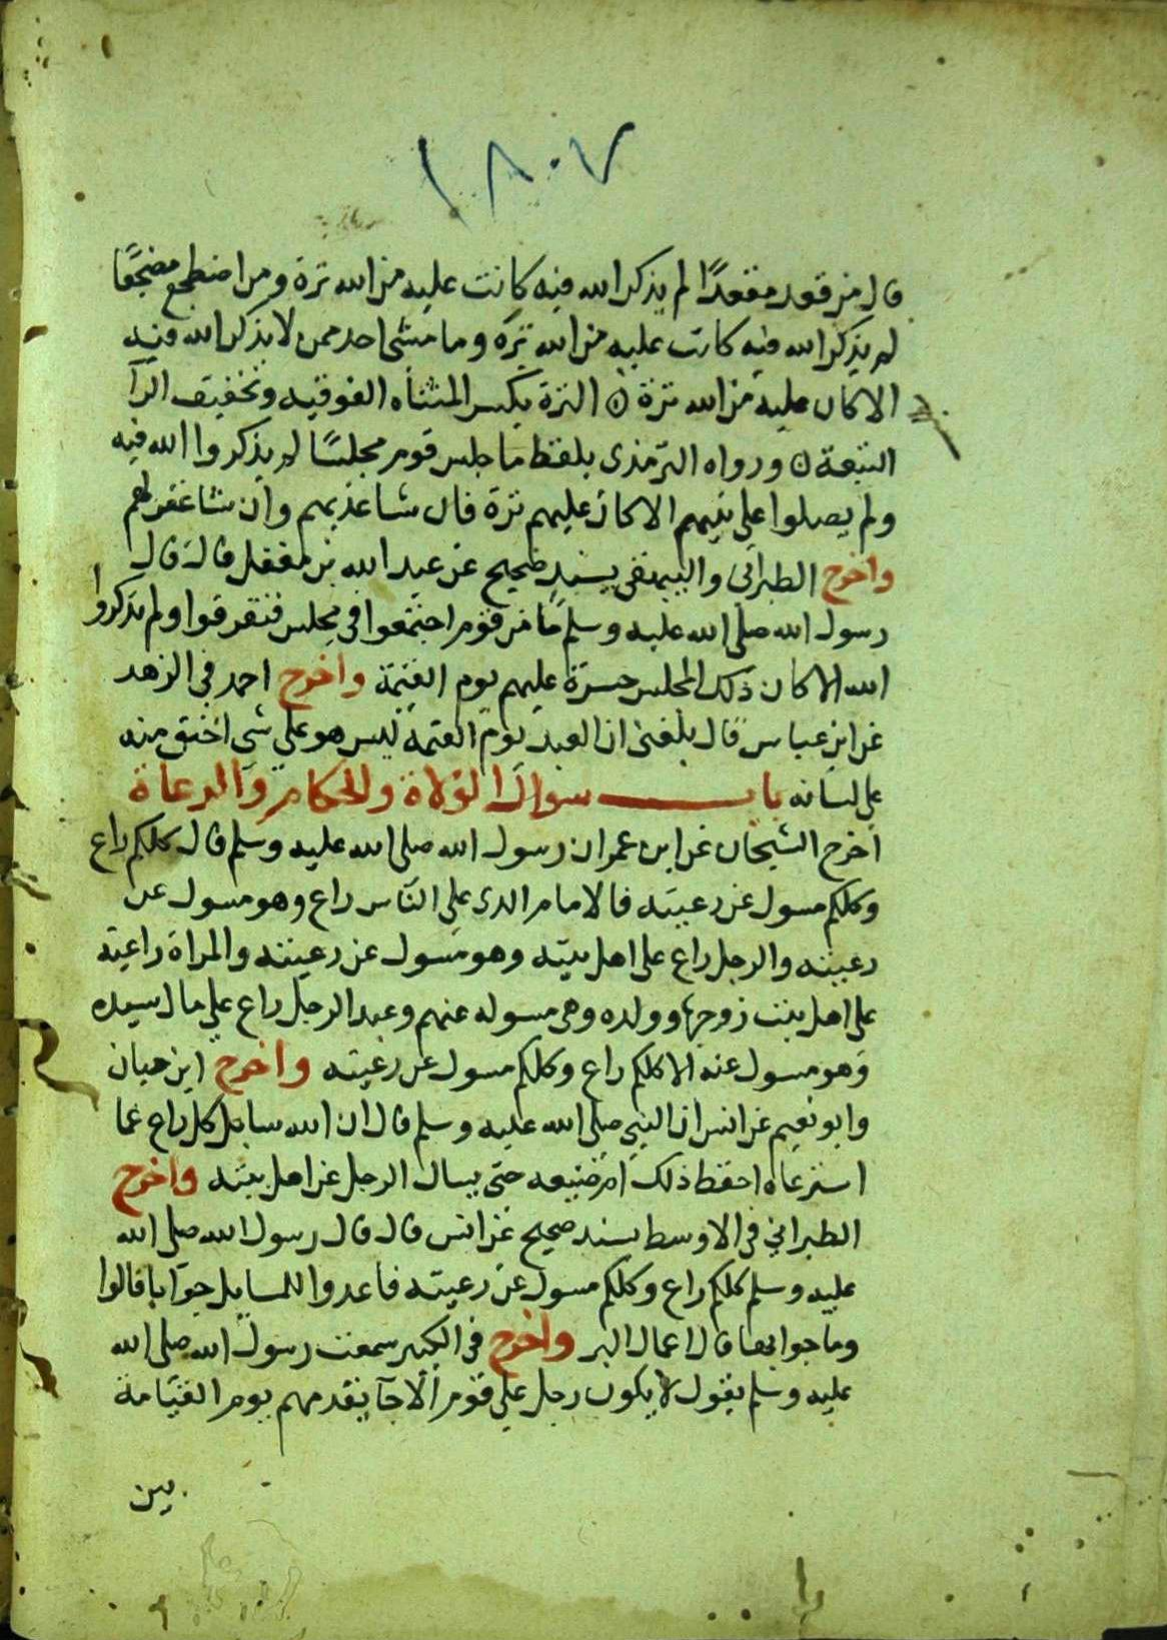 ١٨٠٧
قال من قعد مقعدًا لم يذكر الله فيه كانت عليه من الله ترة ومن اضطجع مضجعًا
لم يذكر الله فيه كانت عليه من الله ترة وما مشى احد ممشى لا يذكر الله فيه
الا كان عليه من الله ترة ن الترة بكسر المثناه الفوقيه وتخفيف الرآ
التبعة ن ورواه الترمذى بلفظ ما جلس قوم مجلسًا لم يذكروا الله فيه
ولم يصلوا على نبيهم الا كان عليهم ترة فان شا عذبهم وان شا غفر لهم
واخرج الطبرانى والبيهقى بسند صحيح عن عبد الله بن مغفل قال قال
رسول الله صلى الله عليه وسلم ما من قوم اجتمعوا فى مجلس فتفرقوا ولم يذكروا
الله الا كان ذلك المجلس حسرة عليهم يوم القيمة واخرج احمد فى الزهد
عن ابن عباس قال بلغنى ان العبد يوم القيمة ليس هو على شى احنق منه
على لسانه باب سوال الولاة والحكام والرعاة
اخرج الشيخان عن ابن عمر ان رسول الله صلى الله عليه وسلم قال كلكم راع
وكلكم مسول عن رعيته فالامام الذى على الناس راع وهو مسول عن
رعيته والرجل راع على اهل بيته وهو مسول عن رعيته والمراة راعية
على اهل بيت زوجها وولده وهى مسوله عنهم وعبد الرجل راع على مال سيده
وهو مسول عنه الا كلكم راع وكلكم مسول عن رعيته واخرج ابن حبان
وابو نعيم عن انس ان النبى صلى الله عليه وسلم قال ان الله سايل كل راع عما
استرعاه احفظ ذلك ام ضيعه حتى يسال الرجل عن اهل بيته واخرج
الطبرانى فى الاوسط بسند صحيح عن انس قال قال رسول الله صلى الله
عليه وسلم كلكم راع وكلكم مسول عن رعيته فاعدوا للمسايل جوابا قالوا
وما جوابها قال اعمال البر واخرج فى الكبير سمعت رسول الله صلى الله
عليه وسلم يقول لا يكون رجل على قوم الا جآ يقدمهم يوم القيامة
بين